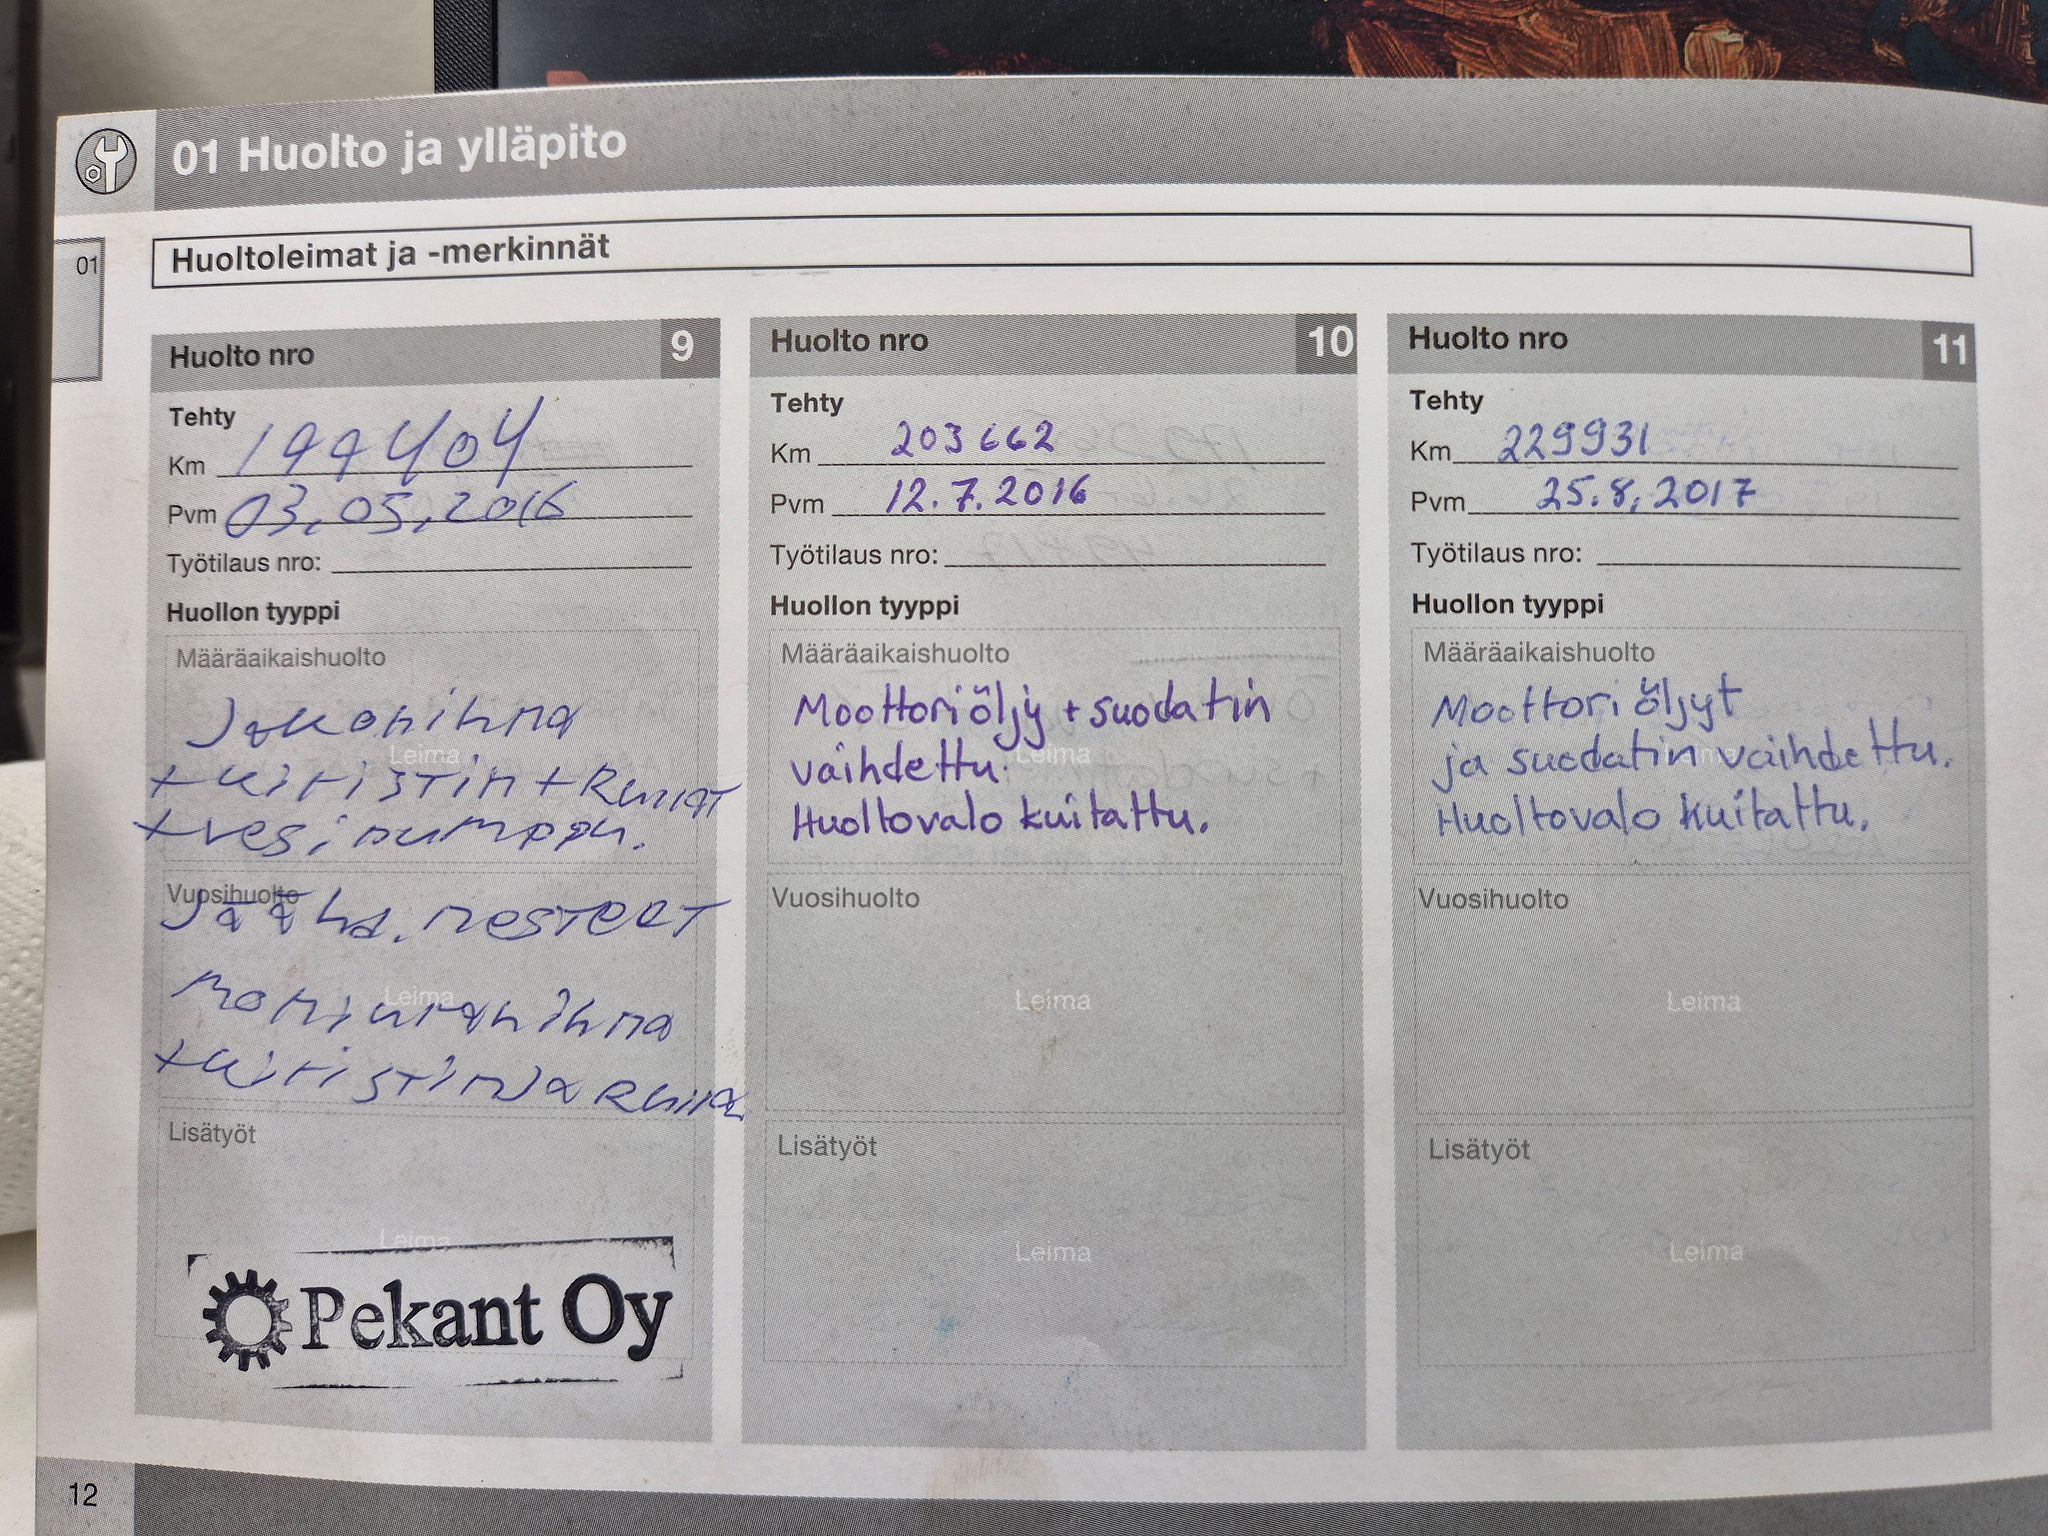 01 Huolto ja ylläpito
01
Huoltoleimat ja -merkinnät
Huolto nro 9
Tehty
Km 199404
Pvm 03.05.2016
Työtilaus nro:
Huollon tyyppi
Määräaikaishuolto
Jakohihna
Leima
+ kiristin + Rullat
+ vesipumppu.
Vuosihuolto
Jäähd. nesteet
Leima
Moniurahihna
+ kiristin ja Rulla
Lisätyöt
Leima
Pekant Oy
Huolto nro 10
Tehty
Km 203662
Pvm 12.7.2016
Työtilaus nro:
Huollon tyyppi
Määräaikaishuolto
Moottoriöljy + suodatin
Leima
vaihdettu.
Huoltovalo kuitattu.
Vuosihuolto
Leima
Lisätyöt
Leima
Huolto nro 11
Tehty
Km 229931
Pvm 25.8.2017
Työtilaus nro:
Huollon tyyppi
Määräaikaishuolto
Moottoriöljyt
ja suodatin vaihdettu.
Huoltovalo kuitattu.
Vuosihuolto
Leima
Lisätyöt
Leima
12